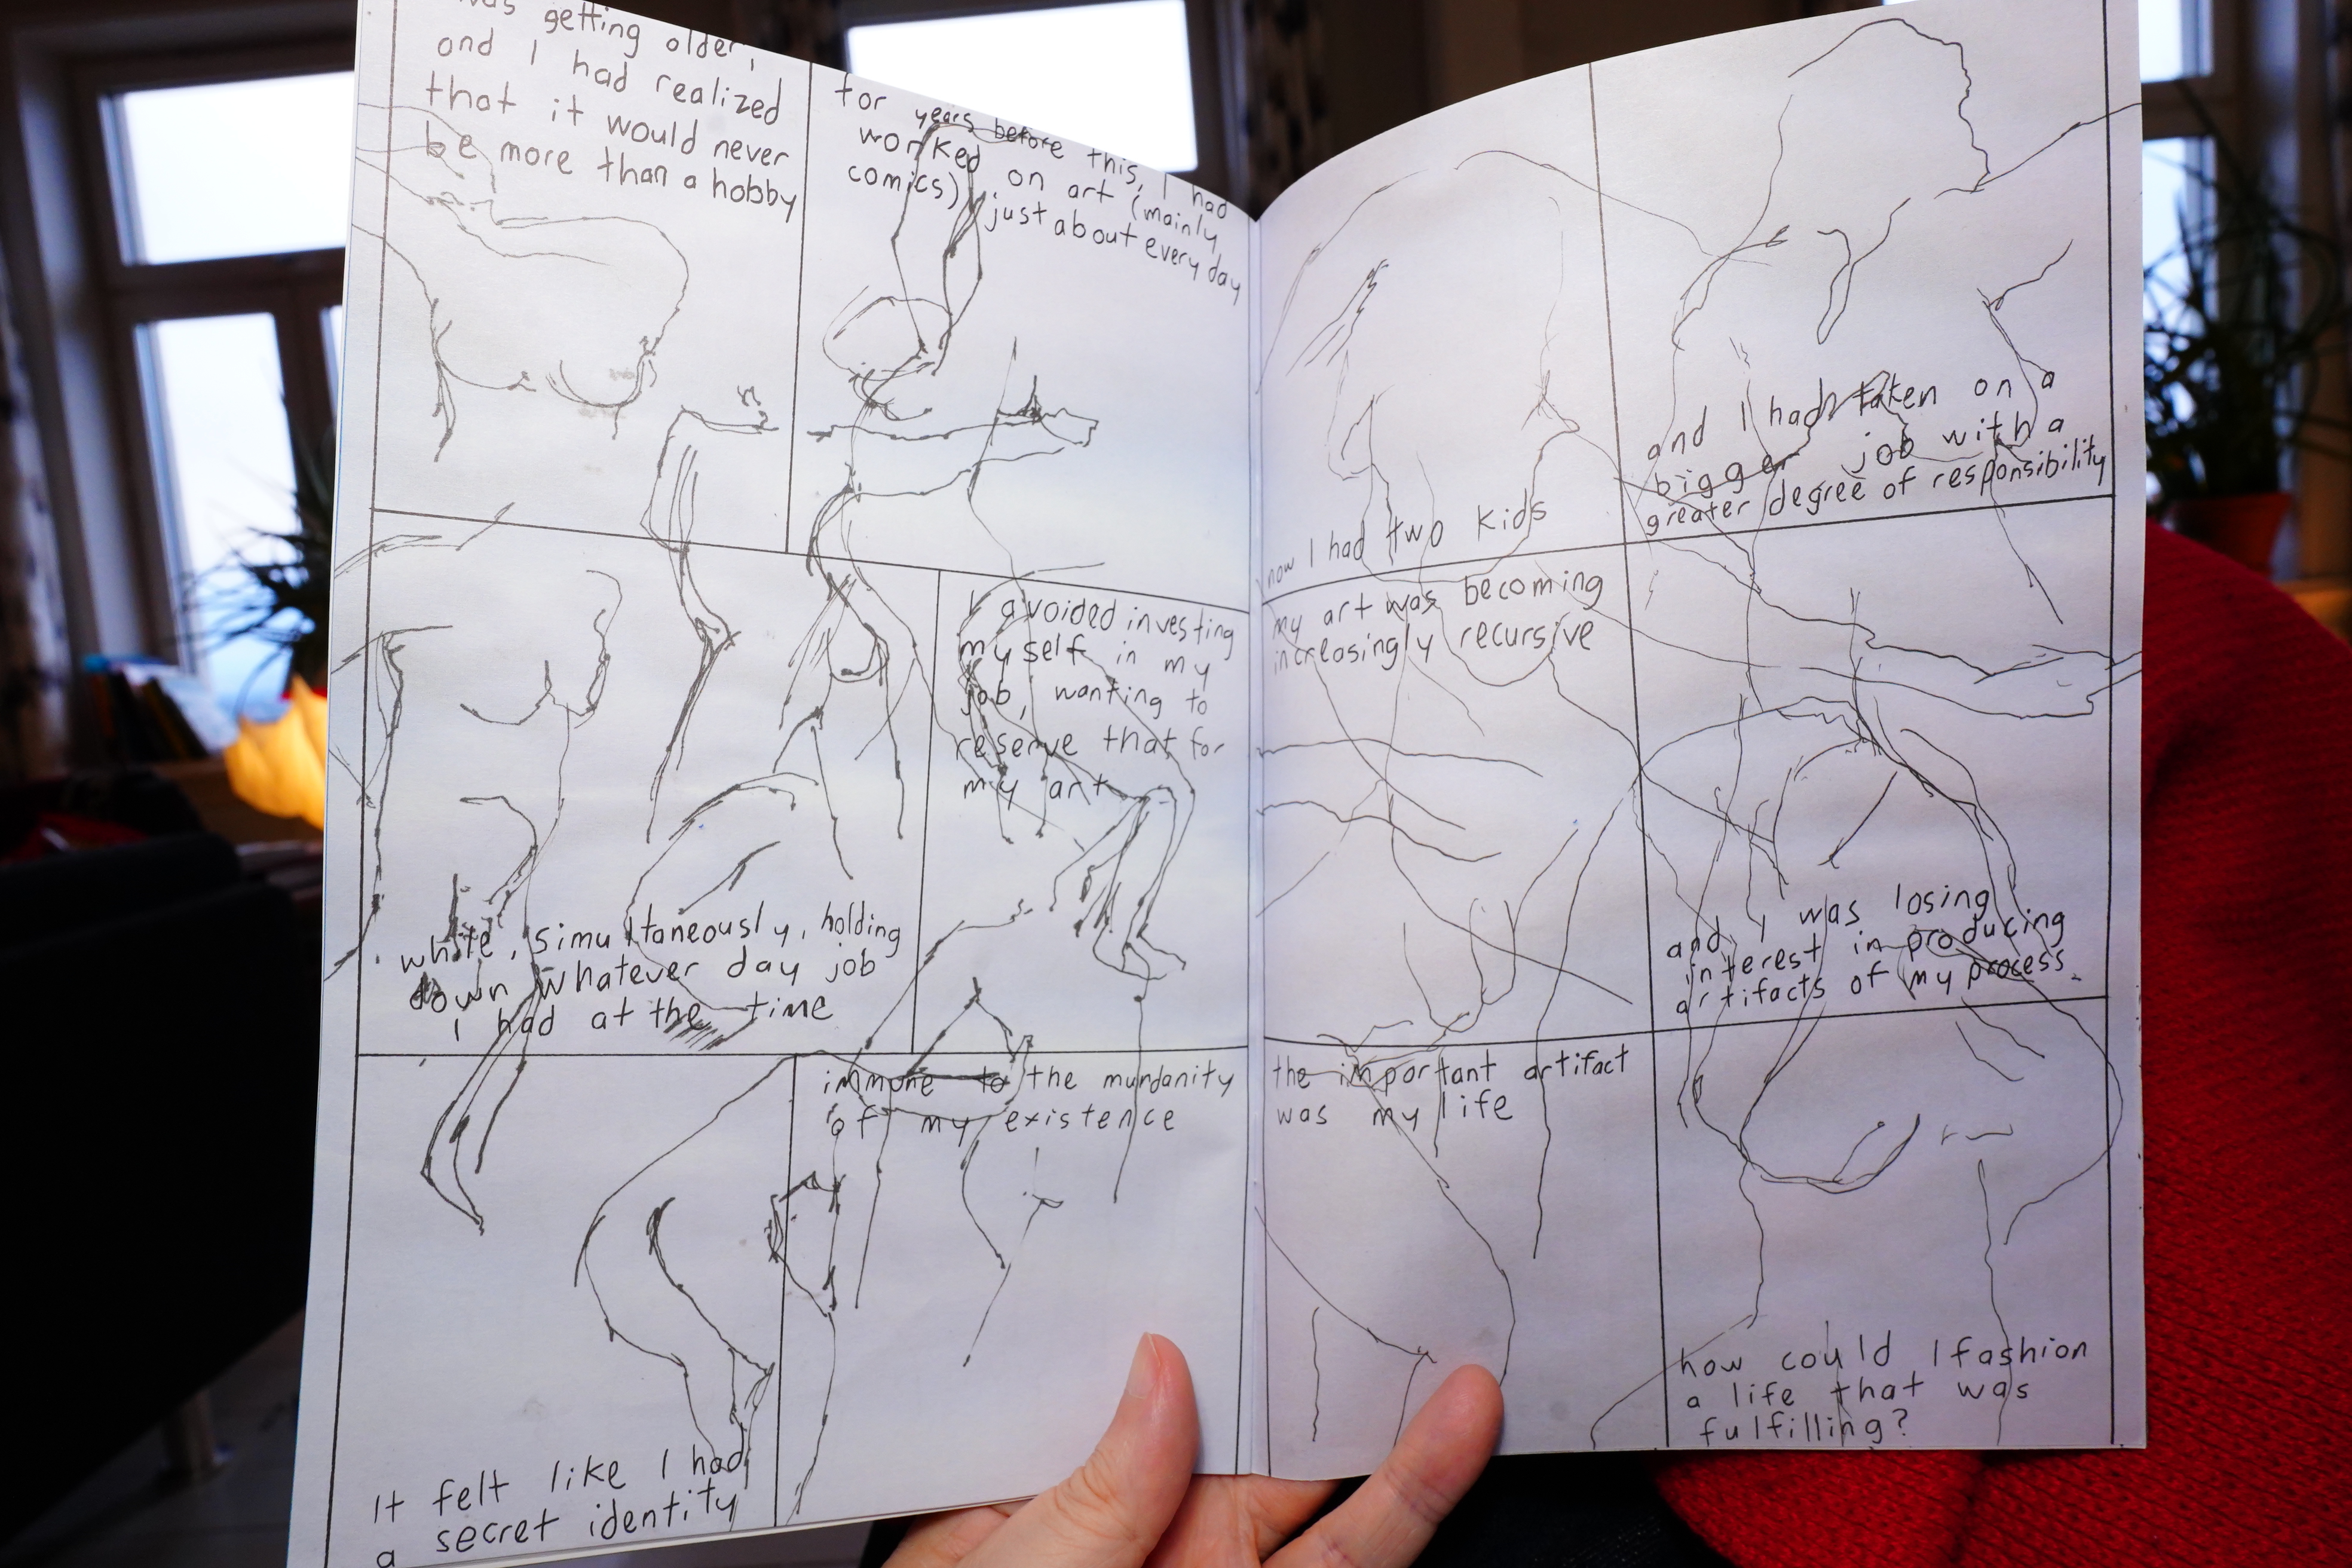 was getting older,
and I had realized
that it would never
be more than a hobby
for years before this, I had
worked on art (mainly
comics) just about every day
while, simultaneously, holding
down whatever day job
I had at the time
I avoided investing
myself in my
job, wanting to
reserve that for
my art
It felt like I had
a secret identity
immune to the mundanity
of my existence
now I had two kids
and I had taken on a
bigger job with a
greater degree of responsibility
my art was becoming
increasingly recursive
and I was losing
interest in producing
artifacts of my process.
the important artifact
was my life
how could I fashion
a life that was
fulfilling?